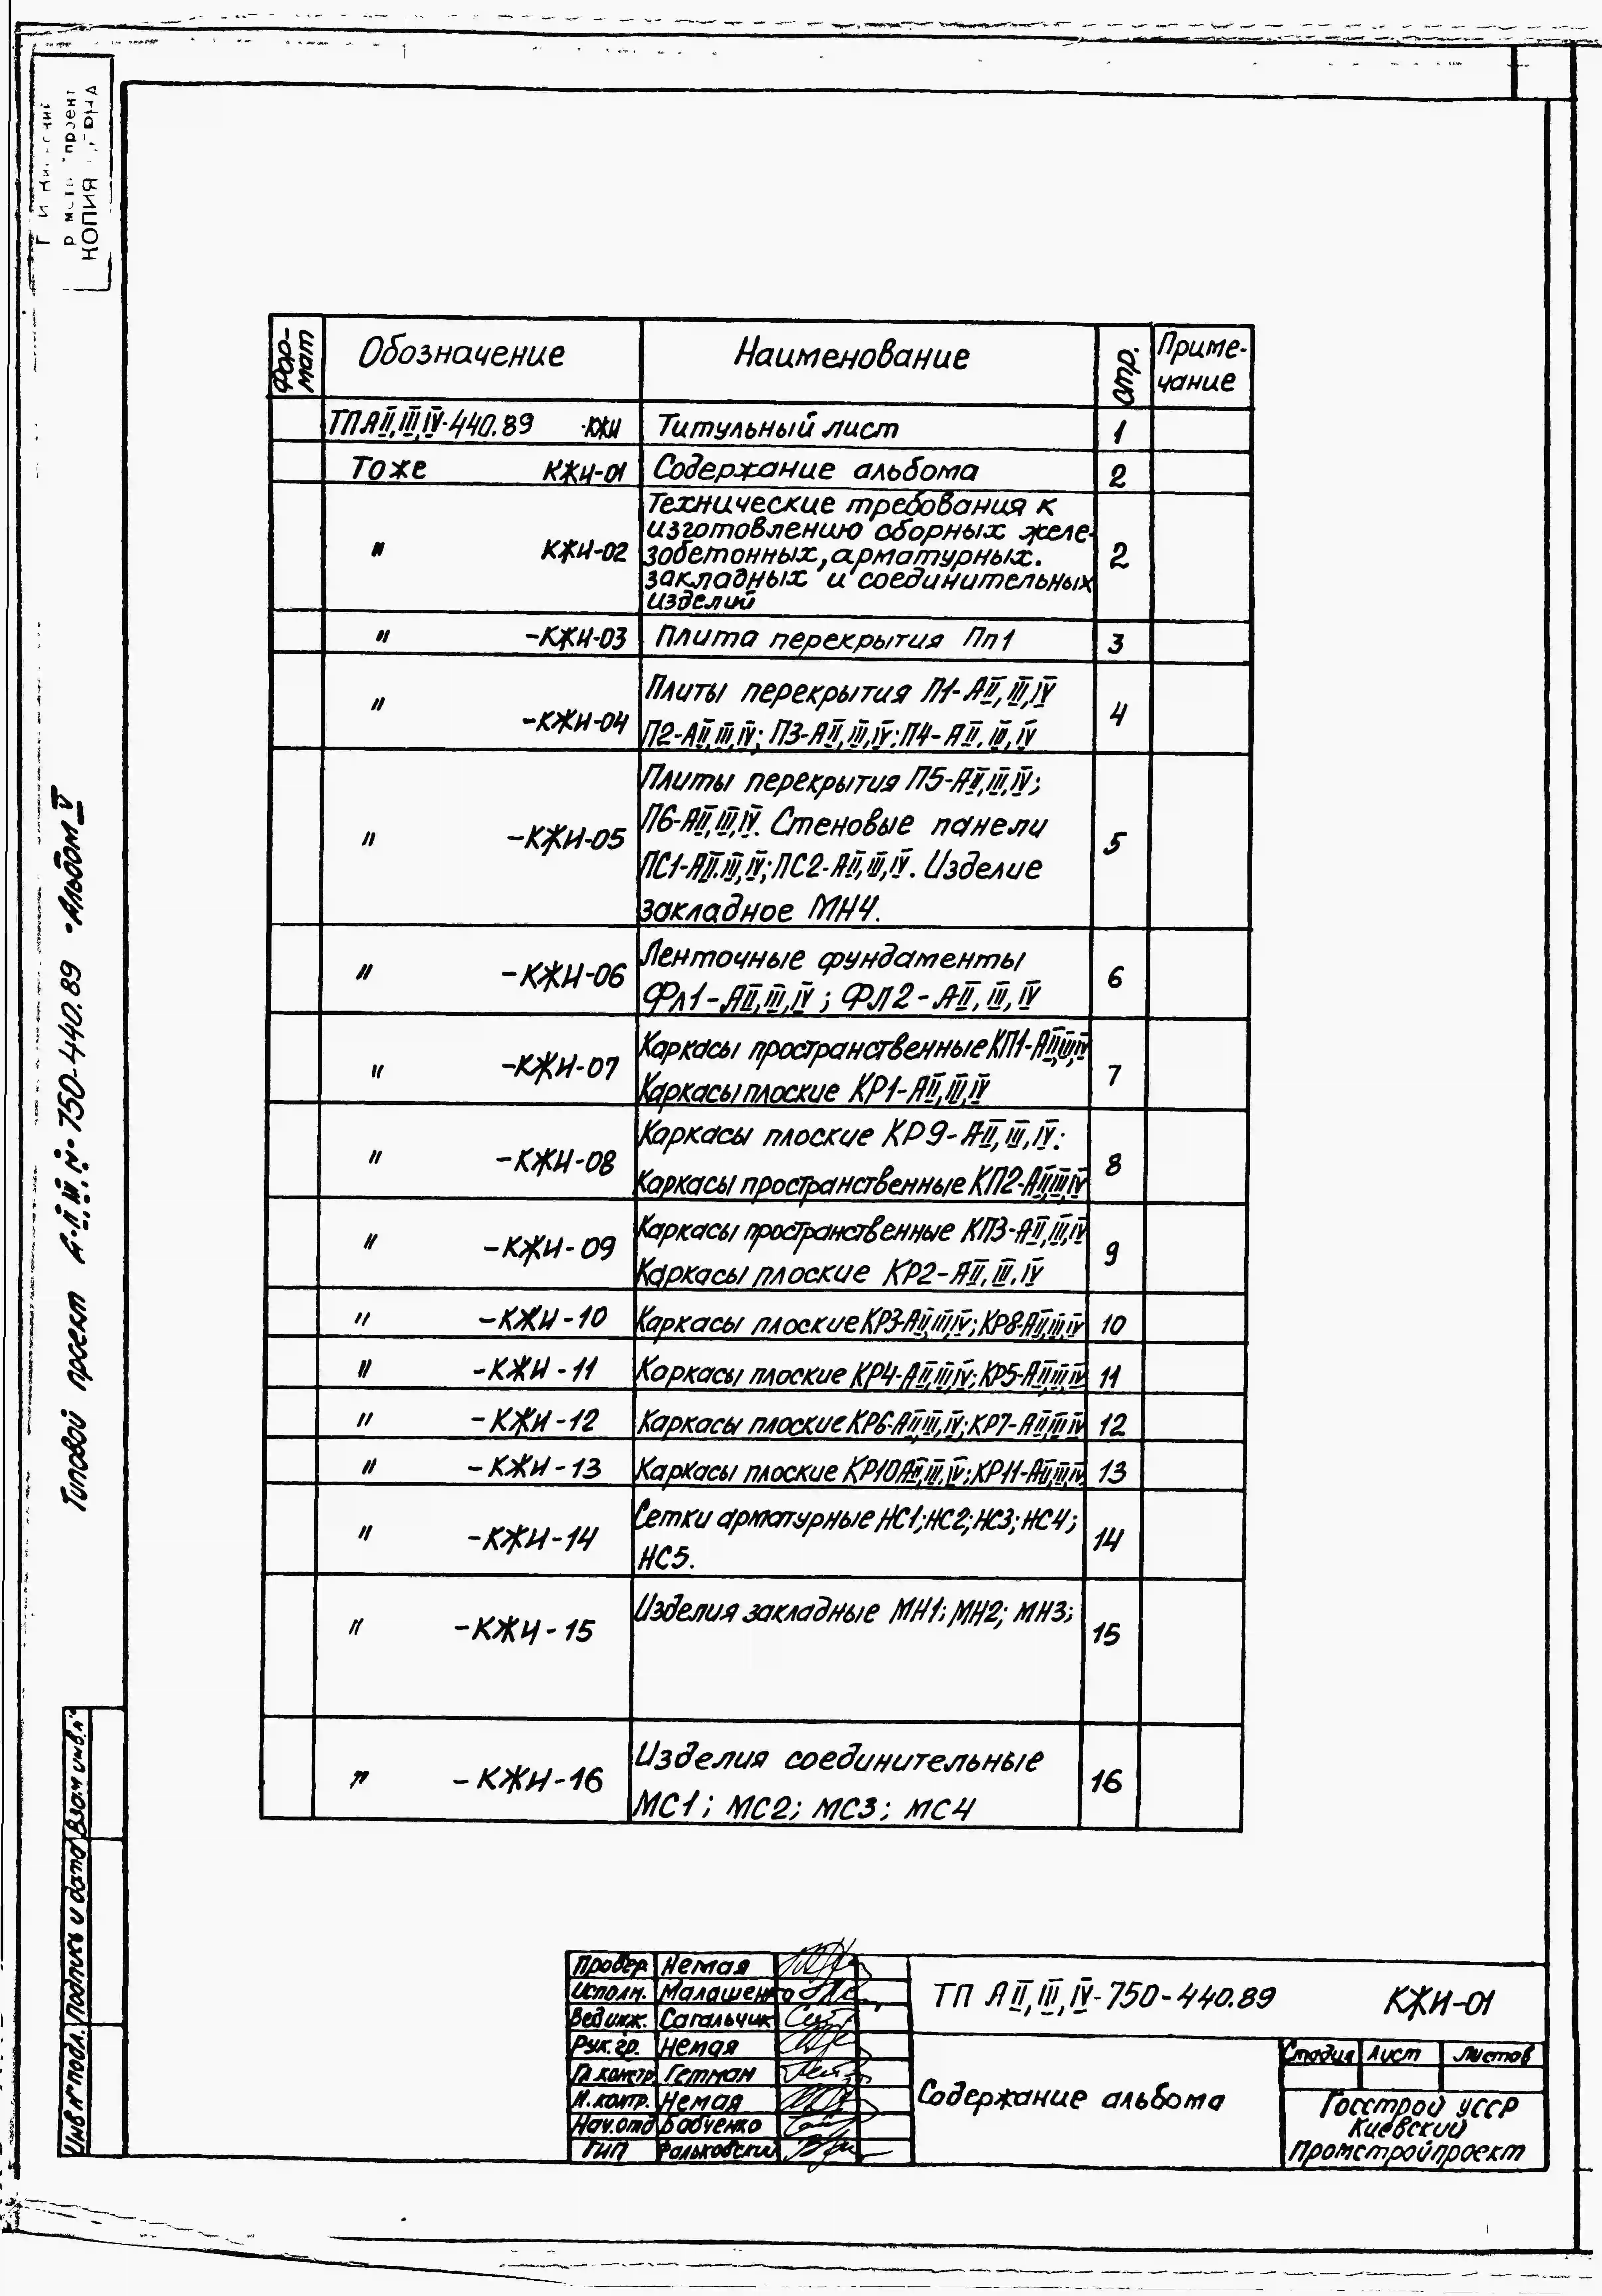 КОПИЯ
Типовой проект А-II,III,IV-750-440.89 •Альбом V
Фор-
мат
Обозначение
Наименование
стр.
Приме-
чание
ТП АII,III,IV-440.89 -КЖИ Титульный лист 1
То же КЖИ-01 Содержание альбома 2
" КЖИ-02
Технические требования к
изготовлению сборных желе-
зобетонных, арматурных.
закладных и соединительных
изделий
2
" -КЖИ-03 Плита перекрытия Пп1 3
" -КЖИ-04
Плиты перекрытия П1-АII,III,IV
П2-АII,III,IV; П3-АII,III,IV; П4-АII,III,IV
4
" -КЖИ-05
Плиты перекрытия П5-АII,III,IV;
П6-АII,III,IV. Стеновые панели
ПС1-АII,III,IV; ПС2-АII,III,IV. Изделие
закладное МН4.
5
" -КЖИ-06
Ленточные фундаменты
Фл1-АII,III,IV; ФЛ2-АII,III,IV
6
" -КЖИ-07
Каркасы пространственные КП1-АII,III,IV
Каркасы плоские КР1-АII,III,IV
7
" -КЖИ-08
Каркасы плоские КР9-АII,III,IV;
Каркасы пространственные КП2-АII,III,IV
8
" -КЖИ-09
Каркасы пространственные КП3-АII,III,IV
Каркасы плоские КР2-АII,III,IV
9
" -КЖИ-10 Каркасы плоские КР3-АII,III,IV; КР8-АII,III,IV 10
" -КЖИ-11 Каркасы плоские КР4-АII,III,IV; КР5-АII,III,IV 11
" -КЖИ-12 Каркасы плоские КР6-АII,III,IV; КР7-АII,III,IV 12
" -КЖИ-13 Каркасы плоские КР10АII,III,IV; КР11-АII,III,IV 13
" -КЖИ-14
Сетки арматурные НС1; НС2; НС3; НС4;
НС5.
14
" -КЖИ-15 Изделия закладные МН1; МН2; МН3; 15
" -КЖИ-16
Изделия соединительные
МС1; МС2; МС3; МС4
16
Взам инв.№
Подпись и дата
Инв № подл.
Провер. Немая
Исполн. Малашенко
Вед инж. Сагальчик
Рук.гр. Немая
Гл констр Гетман
Н.контр. Немая
Нач.отд Бабченко
ГИП Фальковский
ТП АII,III,IV-750-440.89 КЖИ-01
Содержание альбома
Стадия Лист Листов
Госстрой УССР
Киевский
Промстройпроект